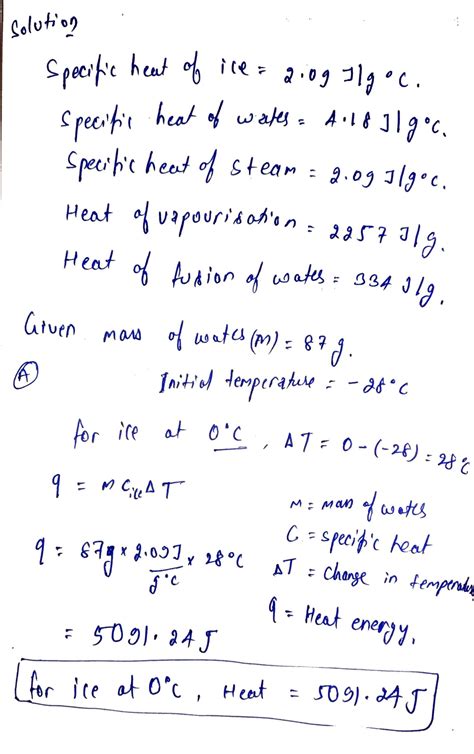 Solution
Specific heat of ice = 2.09 J/g°C.
Specific heat of water = 4.18 J/g°C.
Specific heat of steam = 2.09 J/g°C.
Heat of vapourisation = 2257 J/g.
Heat of fusion of water = 334 J/g.
Given mass of water (m) = 87 g.
Ⓐ Initial temperature = -28°C
for ice at 0°C, ΔT = 0-(-28) = 28°C
q = m Cice ΔT
M = mass of water
C = specific heat
ΔT = Change in temperature
q = Heat energy.
q = 87g × 2.09J/g°C × 28°C
= 5091.24J
for ice at 0°C, Heat = 5091.24J